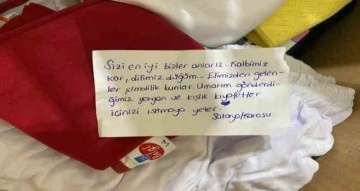 Sizi en iyi bizler anlarız. Kalbimiz
kor, dilimiz düğüm... Elimizden gelen-
ler şimdilik bunlar. Umarım gönderdi-
ğimiz yorgan ve kışlık kıyafetler
içinizi ısıtmaya yeter.